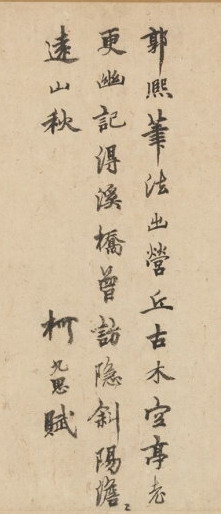 郭熙筆法出營丘古木空亭老
更幽記得溪橋曾訪隐斜陽澹〻
遠山秋
柯九思賦